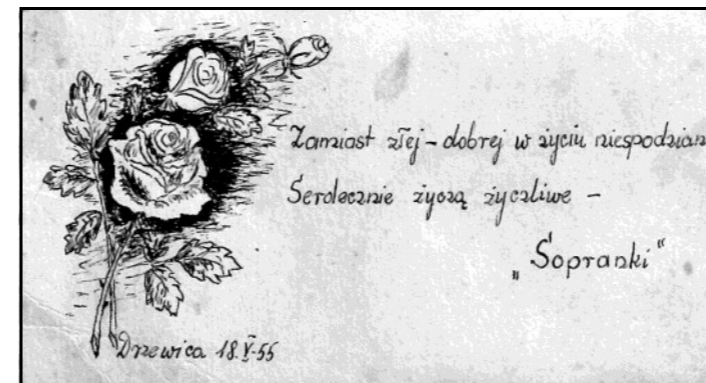 Zamiast złej – dobrej w życiu niespodzian
Serdecznie życzą życzliwe –
„Sopranki“
Drzewica 18.V-55